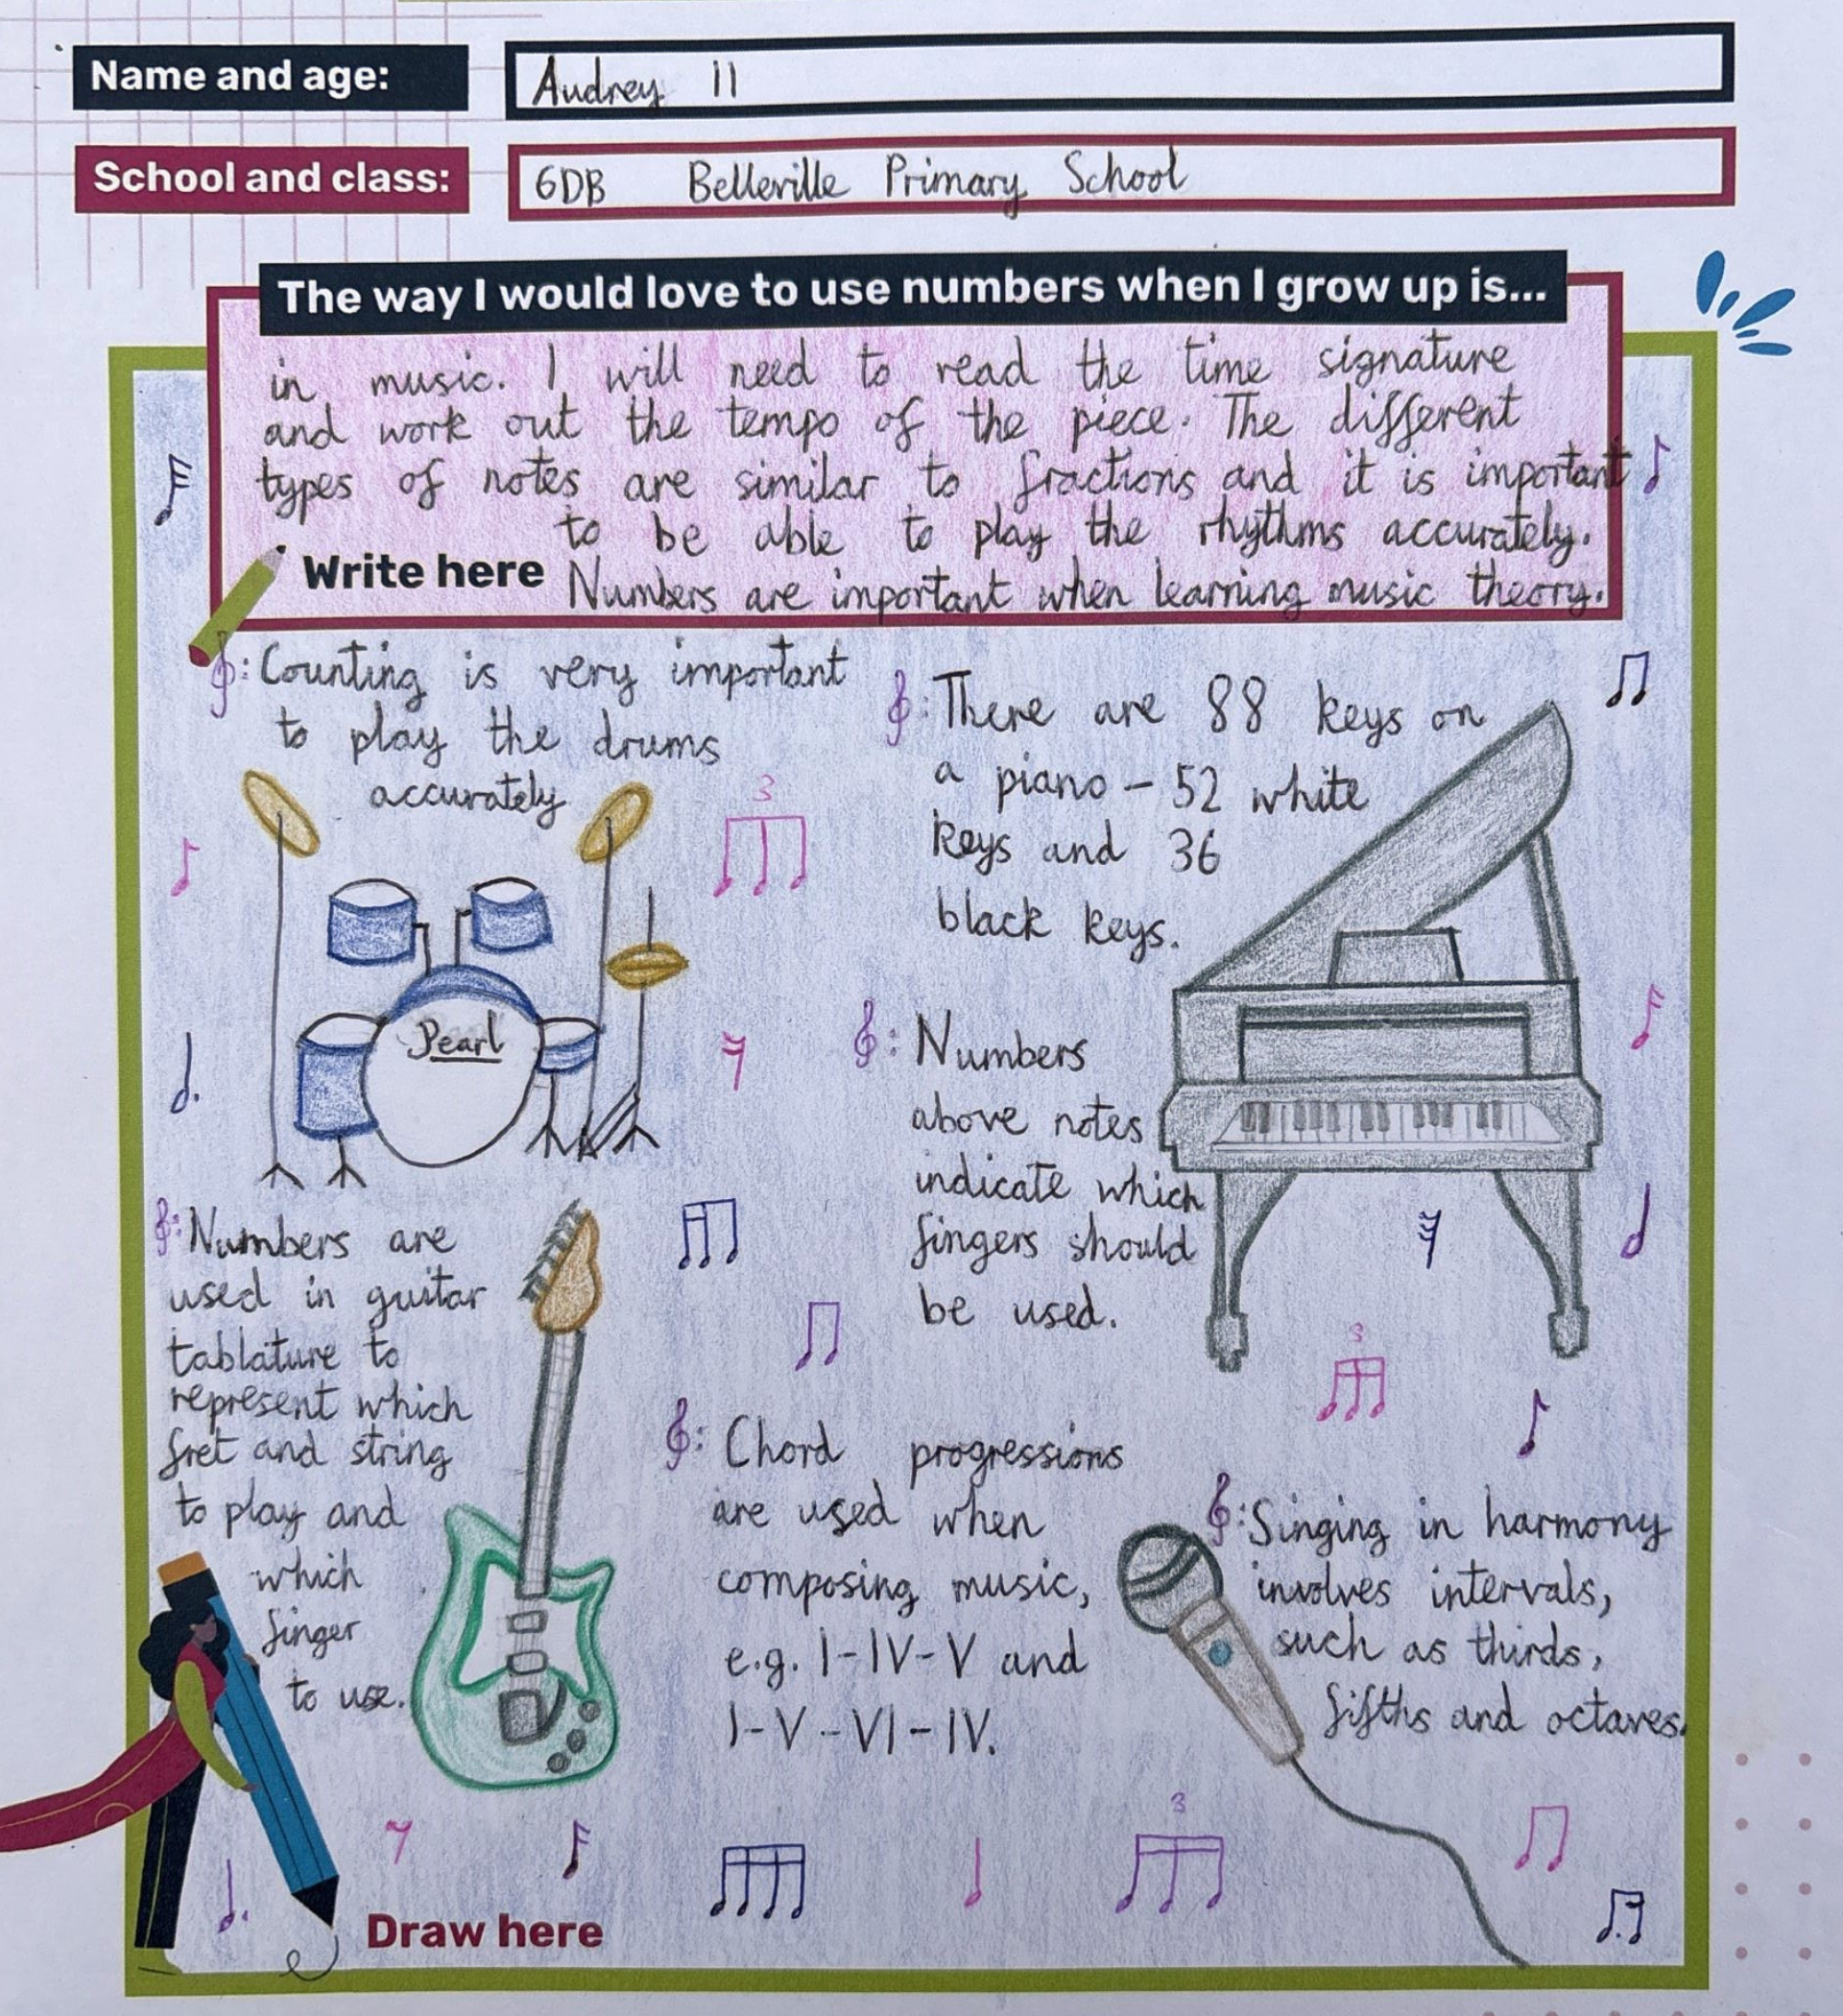 Name and age:
Audrey 11
School and class:
6DB Belleville Primary School
The way I would love to use numbers when I grow up is...
in music. I will need to read the time signature
and work out the tempo of the piece. The different
types of notes are similar to fractions and it is important
to be able to play the rhythms accurately.
Write here
Numbers are important when learning music theory.
: Counting is very important
to play the drums
accurately
: There are 88 keys on
a piano - 52 white
keys and 36
black keys.
3
Pearl
: Numbers
above notes
indicate which
fingers should
be used.
: Numbers are
used in guitar
tablature to
represent which
fret and string
to play and
which
finger
to use.
3
: Chord progressions
are used when
composing music,
e.g. I-IV-V and
I-V-VI-IV.
: Singing in harmony
involves intervals,
such as thirds,
fifths and octaves.
3
Draw here